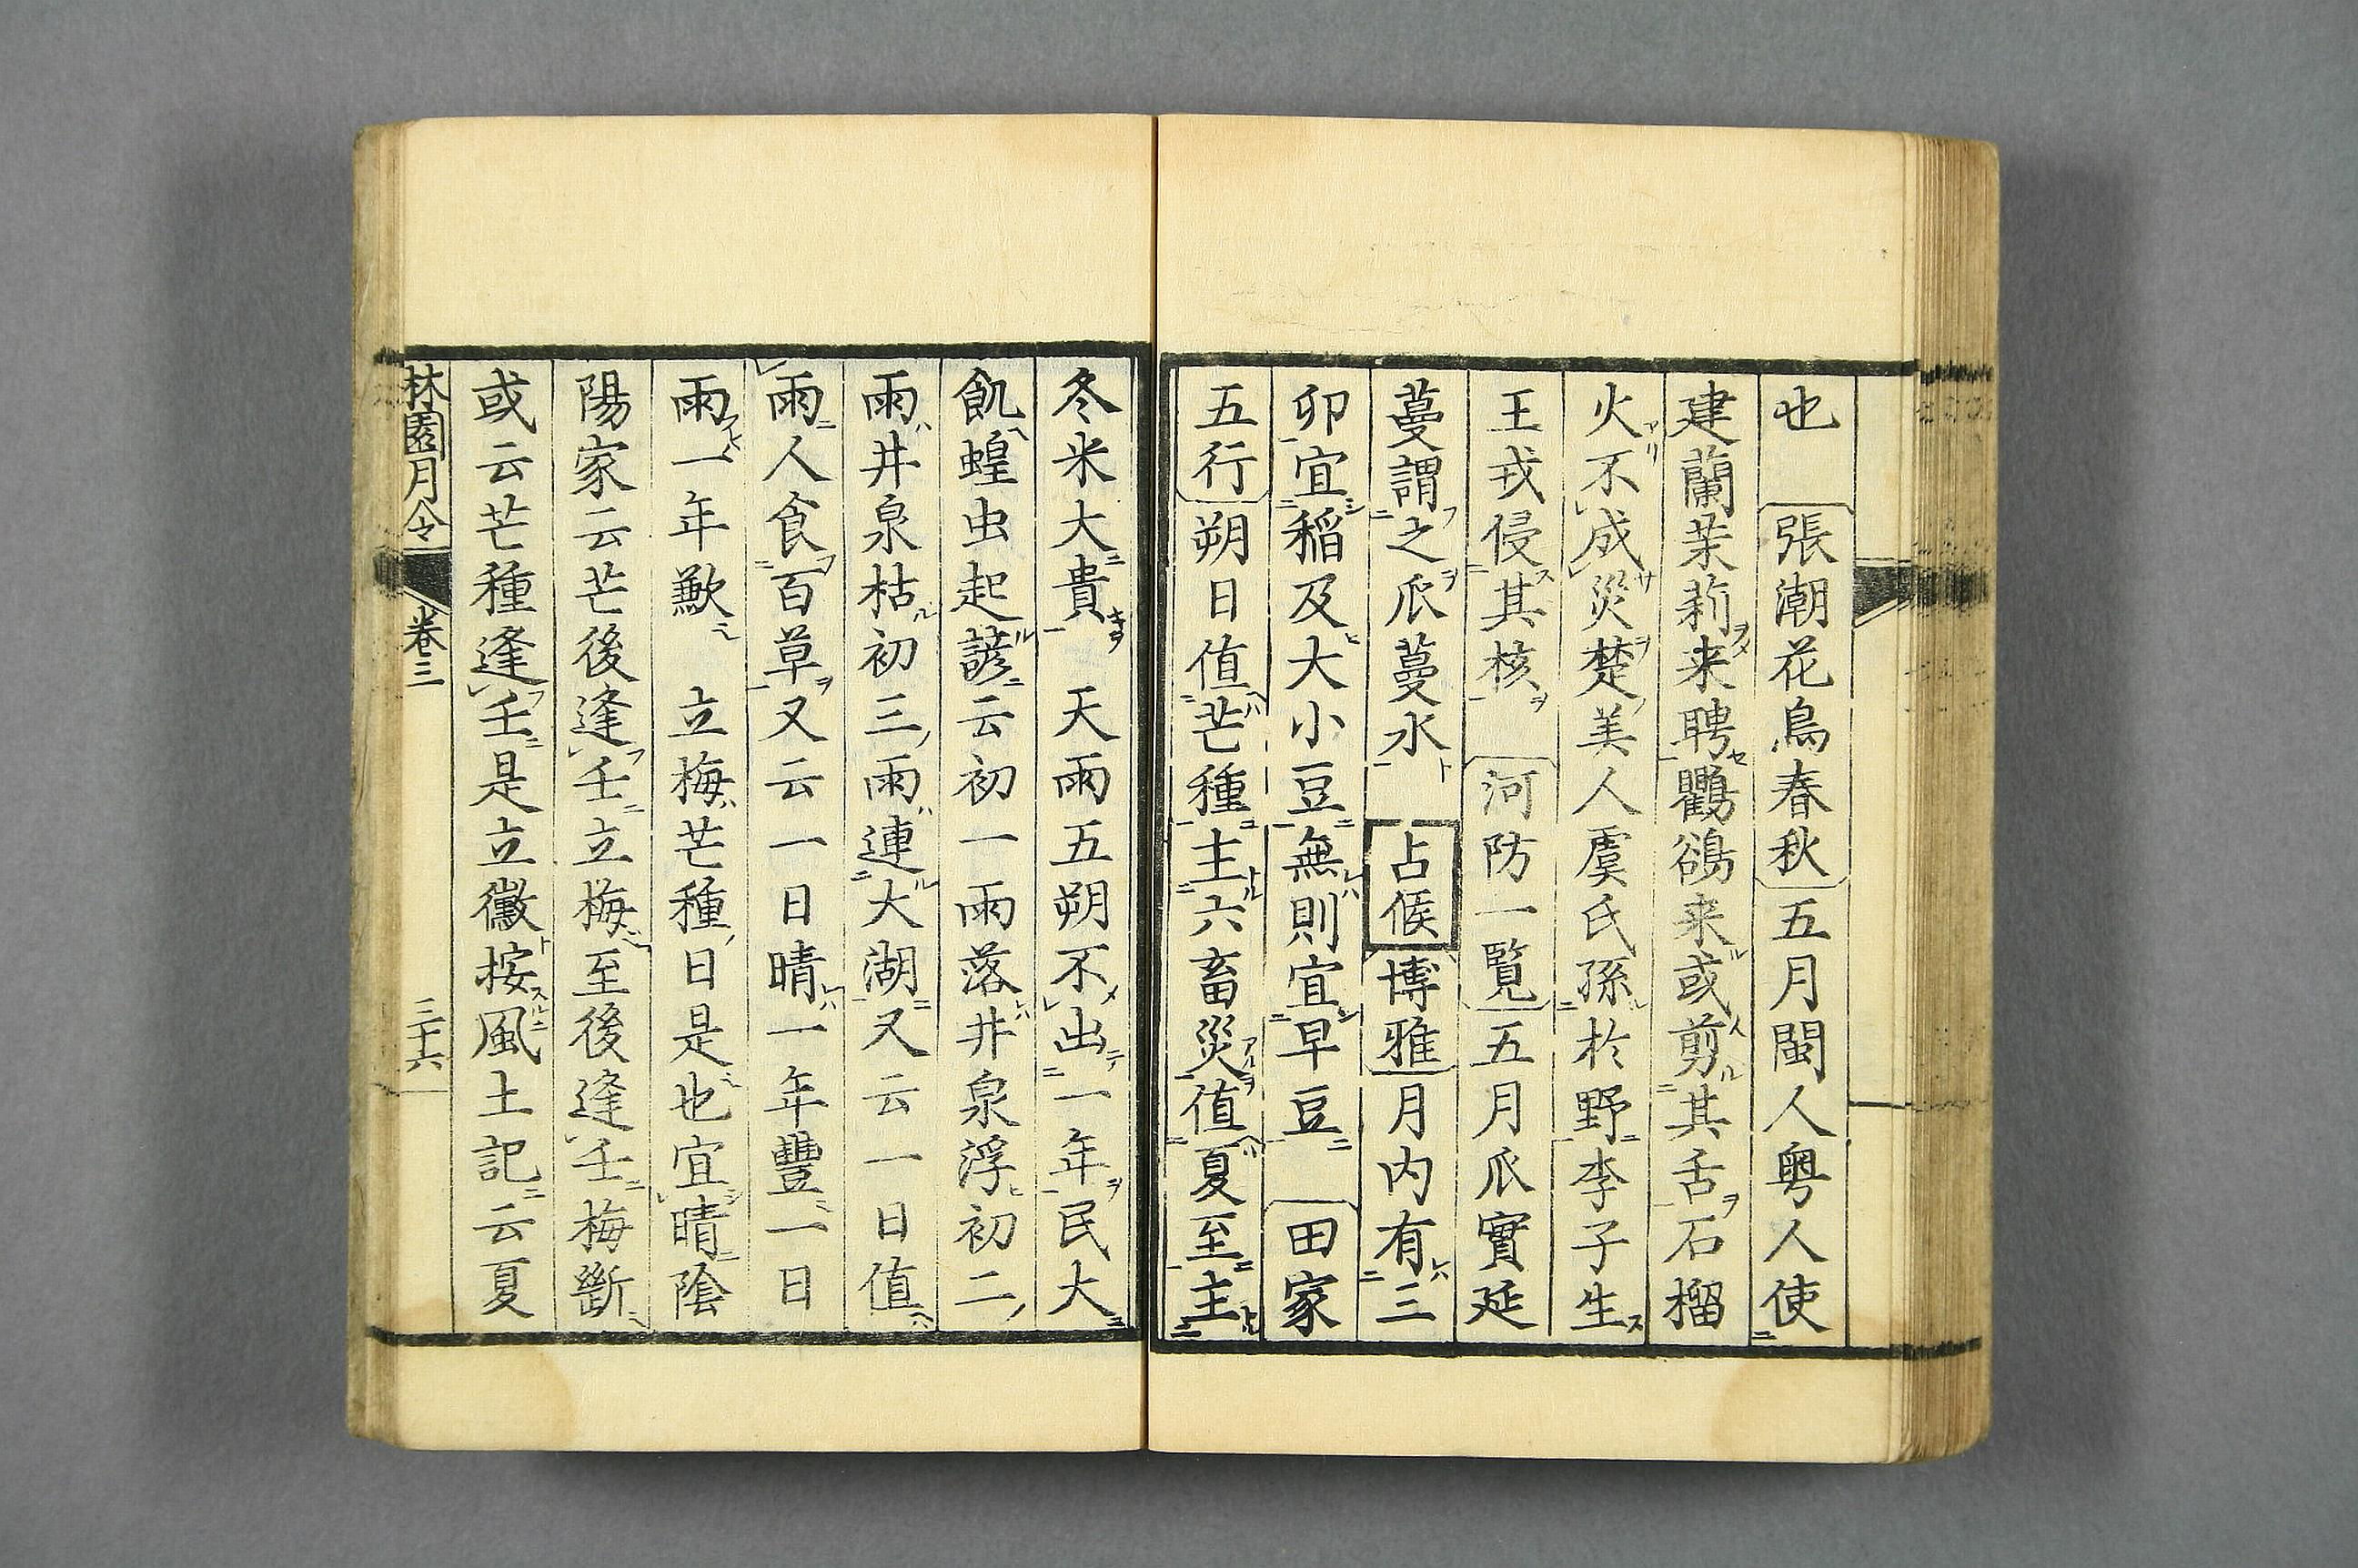 也 張潮花鳥春秋五月閩人粤人使
建蘭茉莉来聘鸜鵒来或剪其舌石榴
火不成災楚美人虞氏孫於野李子生
王戎侵其核 河防一覽五月瓜實延
蔓謂之瓜蔓水 占候博雅月内有三
卯宜稲及大小豆無則宜早豆 田家
五行朔日值芒種主六畜災值夏至主
冬米大貴 天雨五朔不出一年民大
飢蝗虫起諺云初一雨落井泉浮初二
雨井泉枯初三雨連大湖又云一日值
雨人食百草又云一日晴一年豐一日
雨一年歉 立梅芒種日是也宜晴陰
陽家云芒後逢壬立梅至後逢壬梅斷
或云芒種逢壬是立黴按風土記云夏
林園月令 卷三 三十六